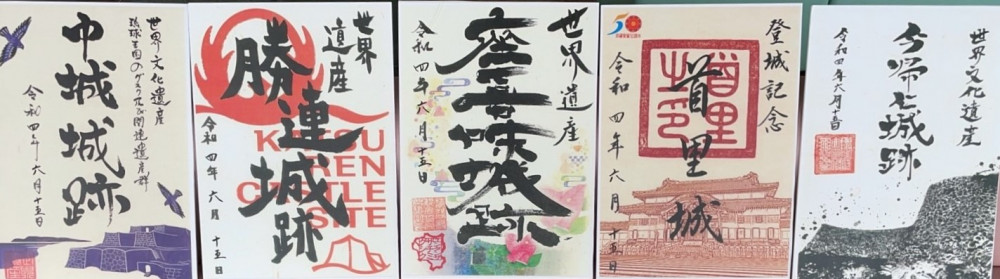 世界文化遺産
琉球王国のグスク及び関連遺産群
中城城跡
令和四年六月十五日
世界
遺産
勝連城跡
令和四年六月
十五日
KATSU
REN
CASTLE
SITE
世界遺産
座喜味城跡
令和四年六月十五日
50
登城記念
首里城
令和四年六月
十五日
世界文化遺産
今帰仁城跡
令和四年六月十五日